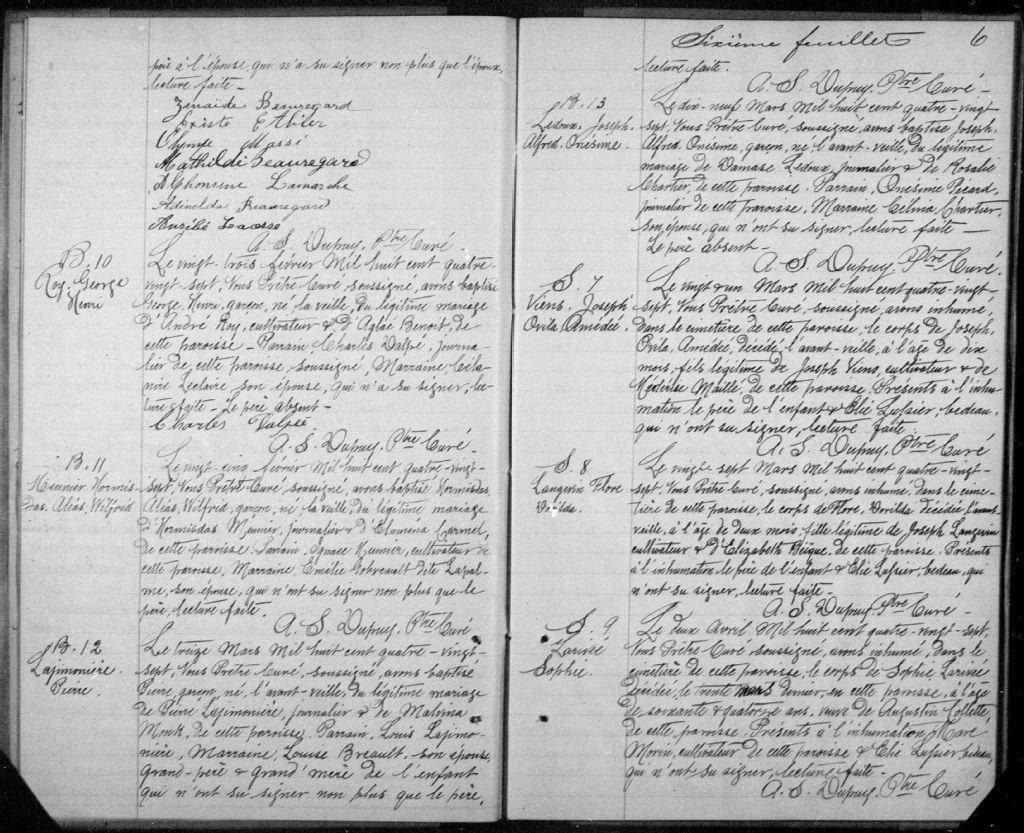 père à l'épouse, qui n'a su signer non plus que l'époux,
lecture faite -
Zénaïde Beauregard
Existe Ethier
Olympe Massé
Mathilde Beauregard
Alphonsine Lamarche
Adinelda Beauregard
Aurélie Lavasse
A. S. Dupuy. Ptre Curé -
B. 10
Roy. George
Henri
Le vingt-trois février Mil huit cent quatre-
vingt-sept, Nous Prêtre Curé soussigné, avons baptisé
George, Henri, garçon, né la veille, du légitime mariage
d'André Roy, cultivateur & d'Aglaé Benoit, de
cette paroisse - Parrain, Charles Dalpé, journa-
lier de cette paroisse, soussigné, Marraine, Céla-
nire Leclaire son épouse, qui n'a su signer, lec-
ture faite - Le père absent -
Charles Dalpé
A. S. Dupuy. Ptre Curé -
B. 11
Meunier Hormis-
das. Aléas, Wilfrid
Le vingt-cinq février Mil huit cent quatre-vingt-
sept, Nous Prêtre Curé, soussigné, avons baptisé Hormisdas,
Aléas, Wilfrid, garçon, né la veille, du légitime mariage
d'Hormisdas Meunier, journalier & d'Elumina Carmel,
de cette paroisse. Parrain, Ignace Meunier, cultivateur de
cette paroisse, Marraine, Emilie Gobreault dite Lapal-
me, son épouse, qui n'ont su signer non plus que le
père, lecture faite.
A. S. Dupuy. Ptre Curé
B. 12
Lajimonière
Pierre.
Le treize Mars Mil huit cent quatre-vingt-
sept, Nous Prêtre Curé, soussigné, avons baptisé
Pierre, garçon, né, l'avant-veille, du légitime mariage
de Pierre Lajimonière, journalier & de Malvina
Monk, de cette paroisse. Parrain, Louis Lajimo-
nière, Marraine, Louise Breault, son épouse,
grand-père & grand'mère de l'enfant
qui n'ont su signer non plus que le père,
Sixième feuillet 6
lecture faite.
A. S. Dupuy. Ptre Curé -
B. 13
Ledoux. Joseph.
Alfred. Onésime.
Le dix-neuf Mars Mil huit cent quatre-vingt
sept, Nous Prêtre Curé, soussigné, avons baptisé Joseph,
Alfred, Onésime, garçon, né l'avant-veille, du légitime
mariage de Damase Ledoux, journalier & de Rosalie
Chartier, de cette paroisse. Parrain, Onésime Picard,
journalier de cette paroisse, Marraine Célina Chartier,
son épouse, qui n'ont su signer, lecture faite -
Le père absent -
A. S. Dupuy. Ptre Curé.
S. 7
Viens. Joseph
Ovila Amédée.
Le vingt & un Mars Mil huit cent quatre-vingt-
sept, Nous Prêtre Curé, soussigné, avons inhumé,
dans le cimetière de cette paroisse, le corps de Joseph,
Ovila, Amédée, décédé l'avant-veille, à l'âge de dix
mois, fils légitime de Joseph Viens, cultivateur & de
Médérise Maillé, de cette paroisse. Présents à l'inhu-
mation le père de l'enfant & Elie Lussier, bedeau,
qui n'ont su signer, lecture faite.
A. S. Dupuy. Ptre Curé
S. 8
Langevin Flore
Dorilda.
Le vingt-sept Mars Mil huit cent quatre-vingt-
sept, Nous Prêtre Curé, soussigné, avons inhumé, dans le cime-
tière de cette paroisse, le corps de Flore, Dorilda décédée l'avant-
veille, à l'âge de deux mois, fille légitime de Joseph Langevin
cultivateur & d'Elizabeth Beïque, de cette paroisse. Présents
à l'inhumation le père de l'enfant & Elie Lussier, bedeau, qui
n'ont su signer, lecture faite -
A. S. Dupuy. Ptre Curé -
S. 9
Larivée
Sophie.
Le deux Avril Mil huit cent quatre-vingt-sept,
Nous Prêtre Curé soussigné, avons inhumé, dans le
cimetière de cette paroisse, le corps de Sophie Larivée
décédée, le trente mars dernier, en cette paroisse, à l'âge
de soixante & quatorze ans, veuve de Augustin Collette,
de cette paroisse. Présents à l'inhumation Marc
Morin, cultivateur de cette paroisse & Elie Lussier, bedeau,
qui n'ont su signer, lecture faite -
A. S. Dupuy. Ptre Curé